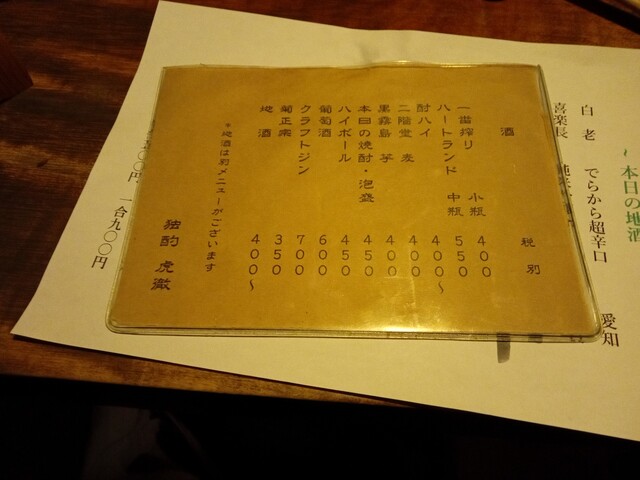 本日の地酒
白老 でらから超辛口 愛知
喜楽長
酒 税別
一番搾り 小瓶 400
ハートランド 中瓶 550
酎ハイ 400〜
二階堂 麦 400
黒霧島 芋 400
本日の焼酎・泡盛 400
ハイボール 450
葡萄酒 600
クラフトジン 700
菊正宗 350
地酒 400〜
*地酒は別メニューがございます
独酌 虎徹
円 一合九〇〇円